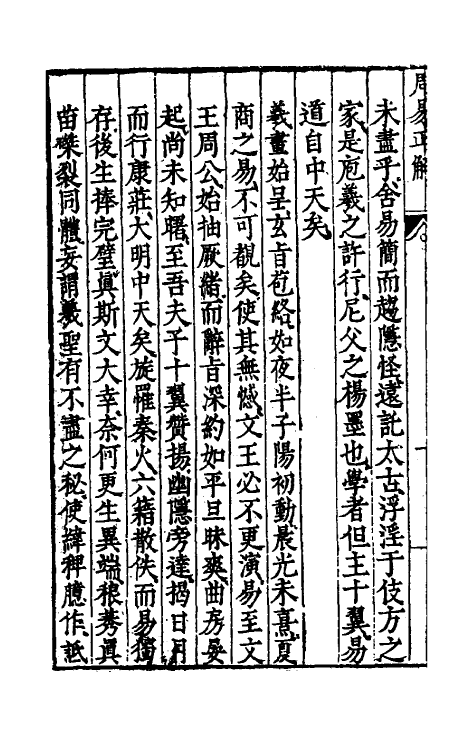 周易正解
未盡乎舍易簡而趨隱怪遠託太古浮淫于伎方之
家是庖羲之許行尼父之楊墨也學者但主十翼易
道自中天矣
羲畫始呈玄旨苞絡如夜半子陽初動晨光未熹夏
商之易不可覩矣使其無憾文王必不更演易至文
王周公始抽厥緒而辭旨深約如平旦昧爽曲房晏
起尚未知曙至吾夫子十翼贊揚幽隱旁達揭日月
而行康莊大明中天矣旋罹秦火六籍散佚而易獨
存後生捧完璧眞斯文大幸奈何更生異端稂莠眞
苗磔裂同體妄謂羲聖有不盡之秘使緯稗臆作詆